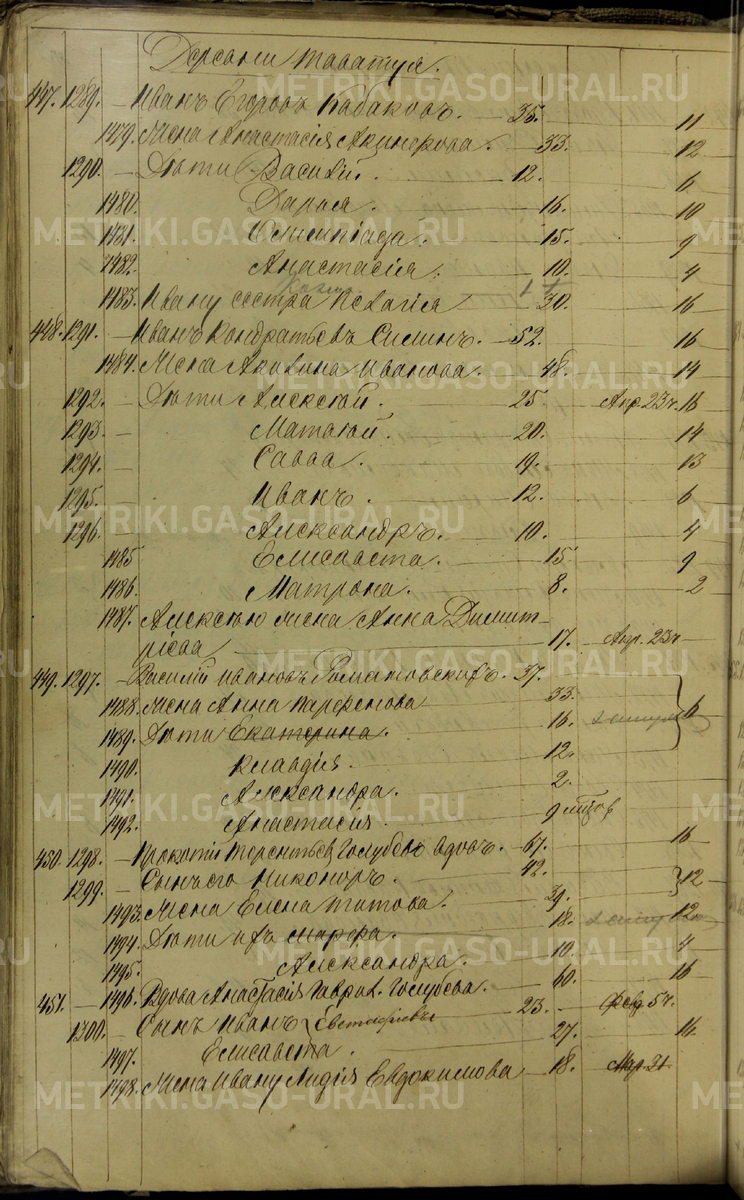 Деревни Таватуя.
447. 1289. — Иванъ Егоровъ Кабаковъ. — 35. 11
1479. Жена Анастасія — 33. 12
1290. — Дѣти Василій. — 12. 6
1480. Дарья — 16. 10
1481. Олимпіада. — 15. 9
1482. Анастасія. — 10. 4
1483. Ивану сестра Пелагія — 30. 16
448. 1291. — Иванъ Кондратьевъ Силинъ. — 52. 16
1484. Жена Акилина Иванова. — 48. 14
1292. — Дѣти Алексѣй. — 25 Апр. 23ч. 16
1293. — Матѳей. — 20. 14
1294. — Савва. — 19. 13
1295. — Иванъ. — 12. 6
1296. — Александръ. — 10. 4
1485 Елисавета. — 15. 9
1486. Матрона. — 8. 2
1487. Алексѣю жена Анна Димит-
ріева — 17. Апр. 23ч —
449. 1297. — Василій Ивановъ — 37.
1488. Жена Анна Парфенова 33. 6
1489. Дѣти Екатерина. 16.
1490. Клавдія. 12.
1491. Александра. 2.
1492. Анастасія 9 мѣсяцов
450. 1298. — Прокопій Терентьев Голубевъ вдовъ. — 67. 16
1299. — Сынъ его Никоноръ. 42. 12
1493. Жена Елена Титова. 39.
1494. Дѣти ихъ Марфа. 18. 12
1495. Александра. 10. 4
451. — 1496. Вдова Анастасія Гаврил. Голубева. — 60. 16
1300. — Сынъ Иванъ Евстафіевъ — 23. — Фев 5ч.
1497. Елисавета. — 27. 16
1498. Жена Ивану Лидія Евдокимова — 18. Мар. 31.
METRIKI.GASO-URAL.RU